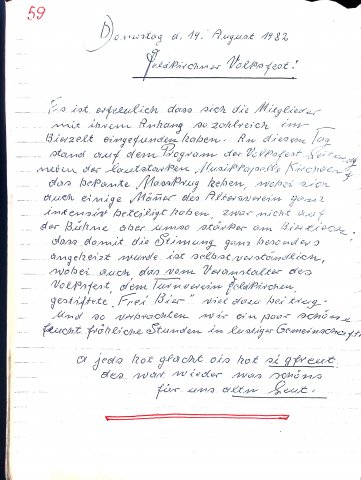 59
Donnerstag d. 19. August 1982
Feldkirchner Volksfest!
Es ist erfreulich dass sich die Mitglieder
mit ihrem Anhang so zahlreich im
Bierzelt eingefunden haben. An diesem Tag
stand auf dem Program der Volksfest
neben der lautstarken Musikkapelle Kirchdorf
das bekante Maaskrug heben, wobei sich
auch einige Mäner des Altersverein ganz
intensiv beteiligt haben, zwar nicht auf
der Bühne aber umso stärker am Biertisch.
dass damit die Stimung ganz besonders
angeheizt wurde ist selbstverständlich,
wobei auch das vom Veranstalter des
Volksfest, dem Turnverein Feldkirchen,
gestiftete "Frei Bier" viel dazu beitrug.
Und so verbrachten wir ein paar schöne
feucht fröhliche Stunden in lustiger Gemeinschaft.
A jeds hot glacht ois hot si gfreut
des war wieder was schöns
für uns alte Leut.